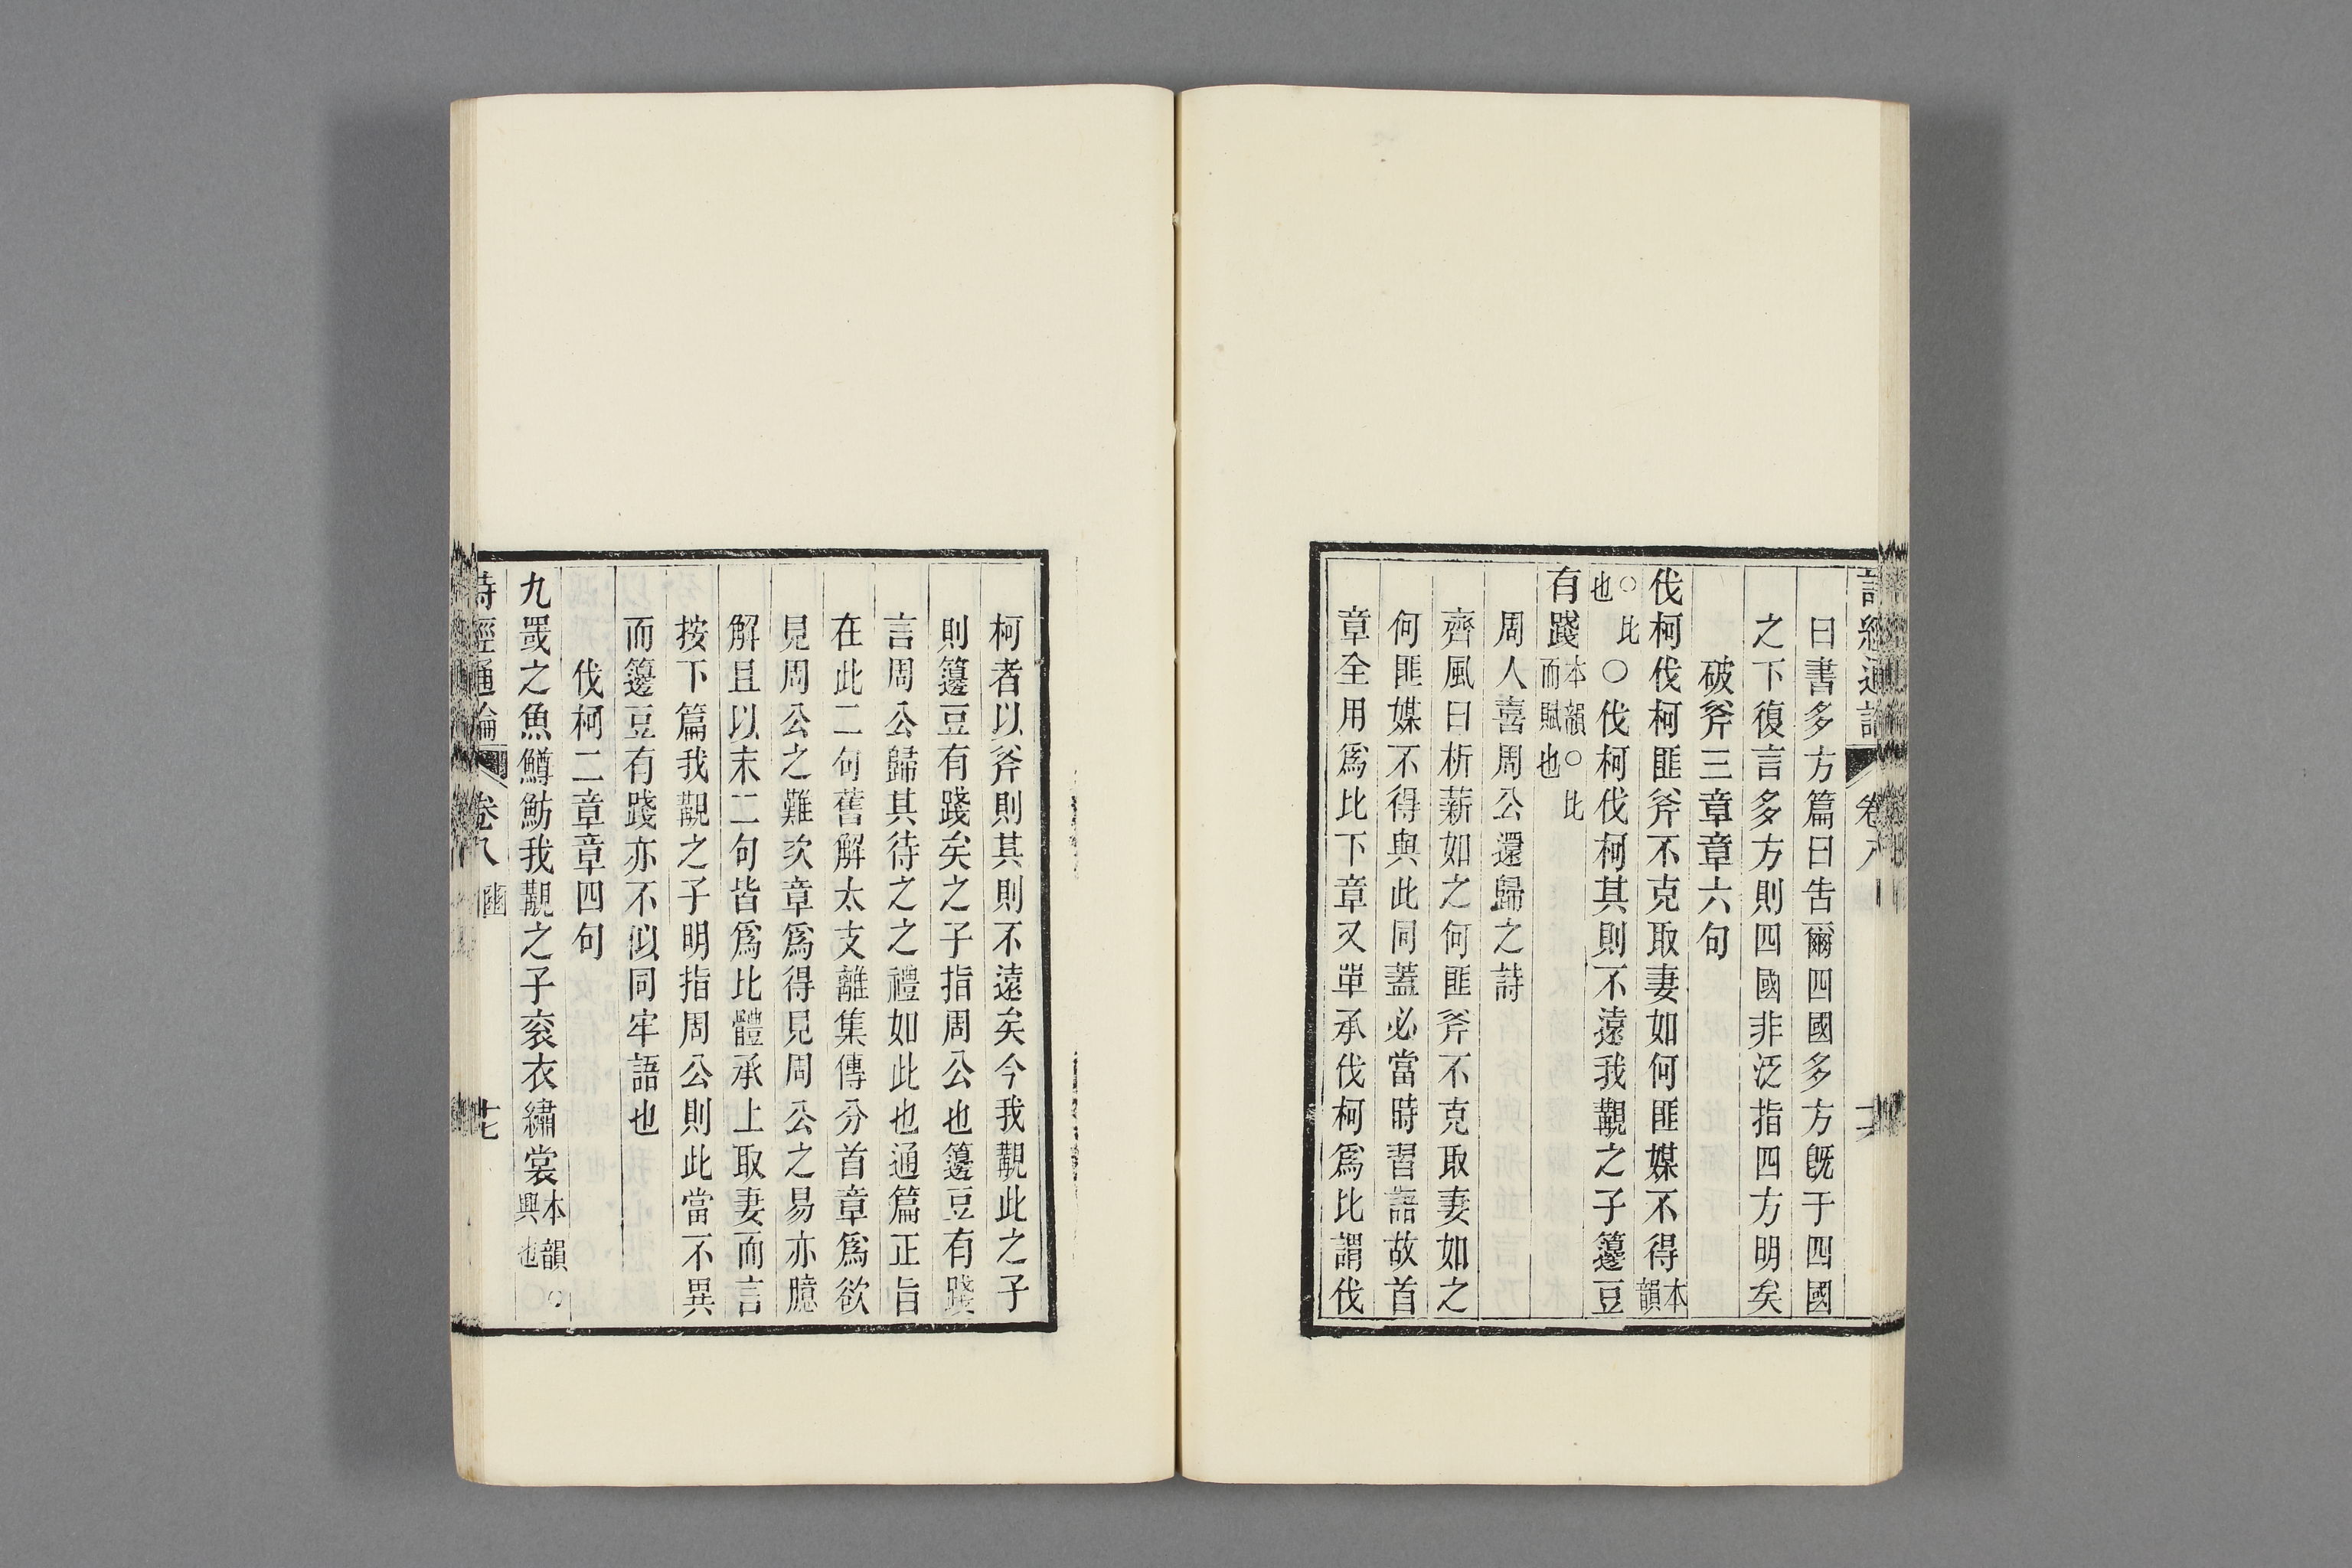 詩經通論 卷八
曰書多方篇曰告爾四國多方旣于四國
之下復言多方則四國非泛指四方明矣
破斧三章章六句
伐柯伐柯匪斧不克取妻如何匪媒不得本韻
○比也○伐柯伐柯其則不遠我覯之子籩豆
有踐本韻○比而賦也
周人喜周公還歸之詩
齊風曰析薪如之何匪斧不克取妻如之
何匪媒不得與此同蓋必當時習語故首
章全用爲比下章又單承伐柯爲比謂伐
柯者以斧則其則不遠矣今我覯此之子
則籩豆有踐矣之子指周公也籩豆有踐
言周公歸其待之之禮如此也通篇正旨
在此二句舊解太支離集傳分首章爲欲
見周公之難次章爲得見周公之易亦臆
解且以末二句皆爲比體承上取妻而言
按下篇我覯之子明指周公則此當不異
而籩豆有踐亦不似同牢語也
伐柯二章章四句
九罭之魚鱒魴我覯之子袞衣繡裳本韻○興也
詩經通論 卷八 豳 十七